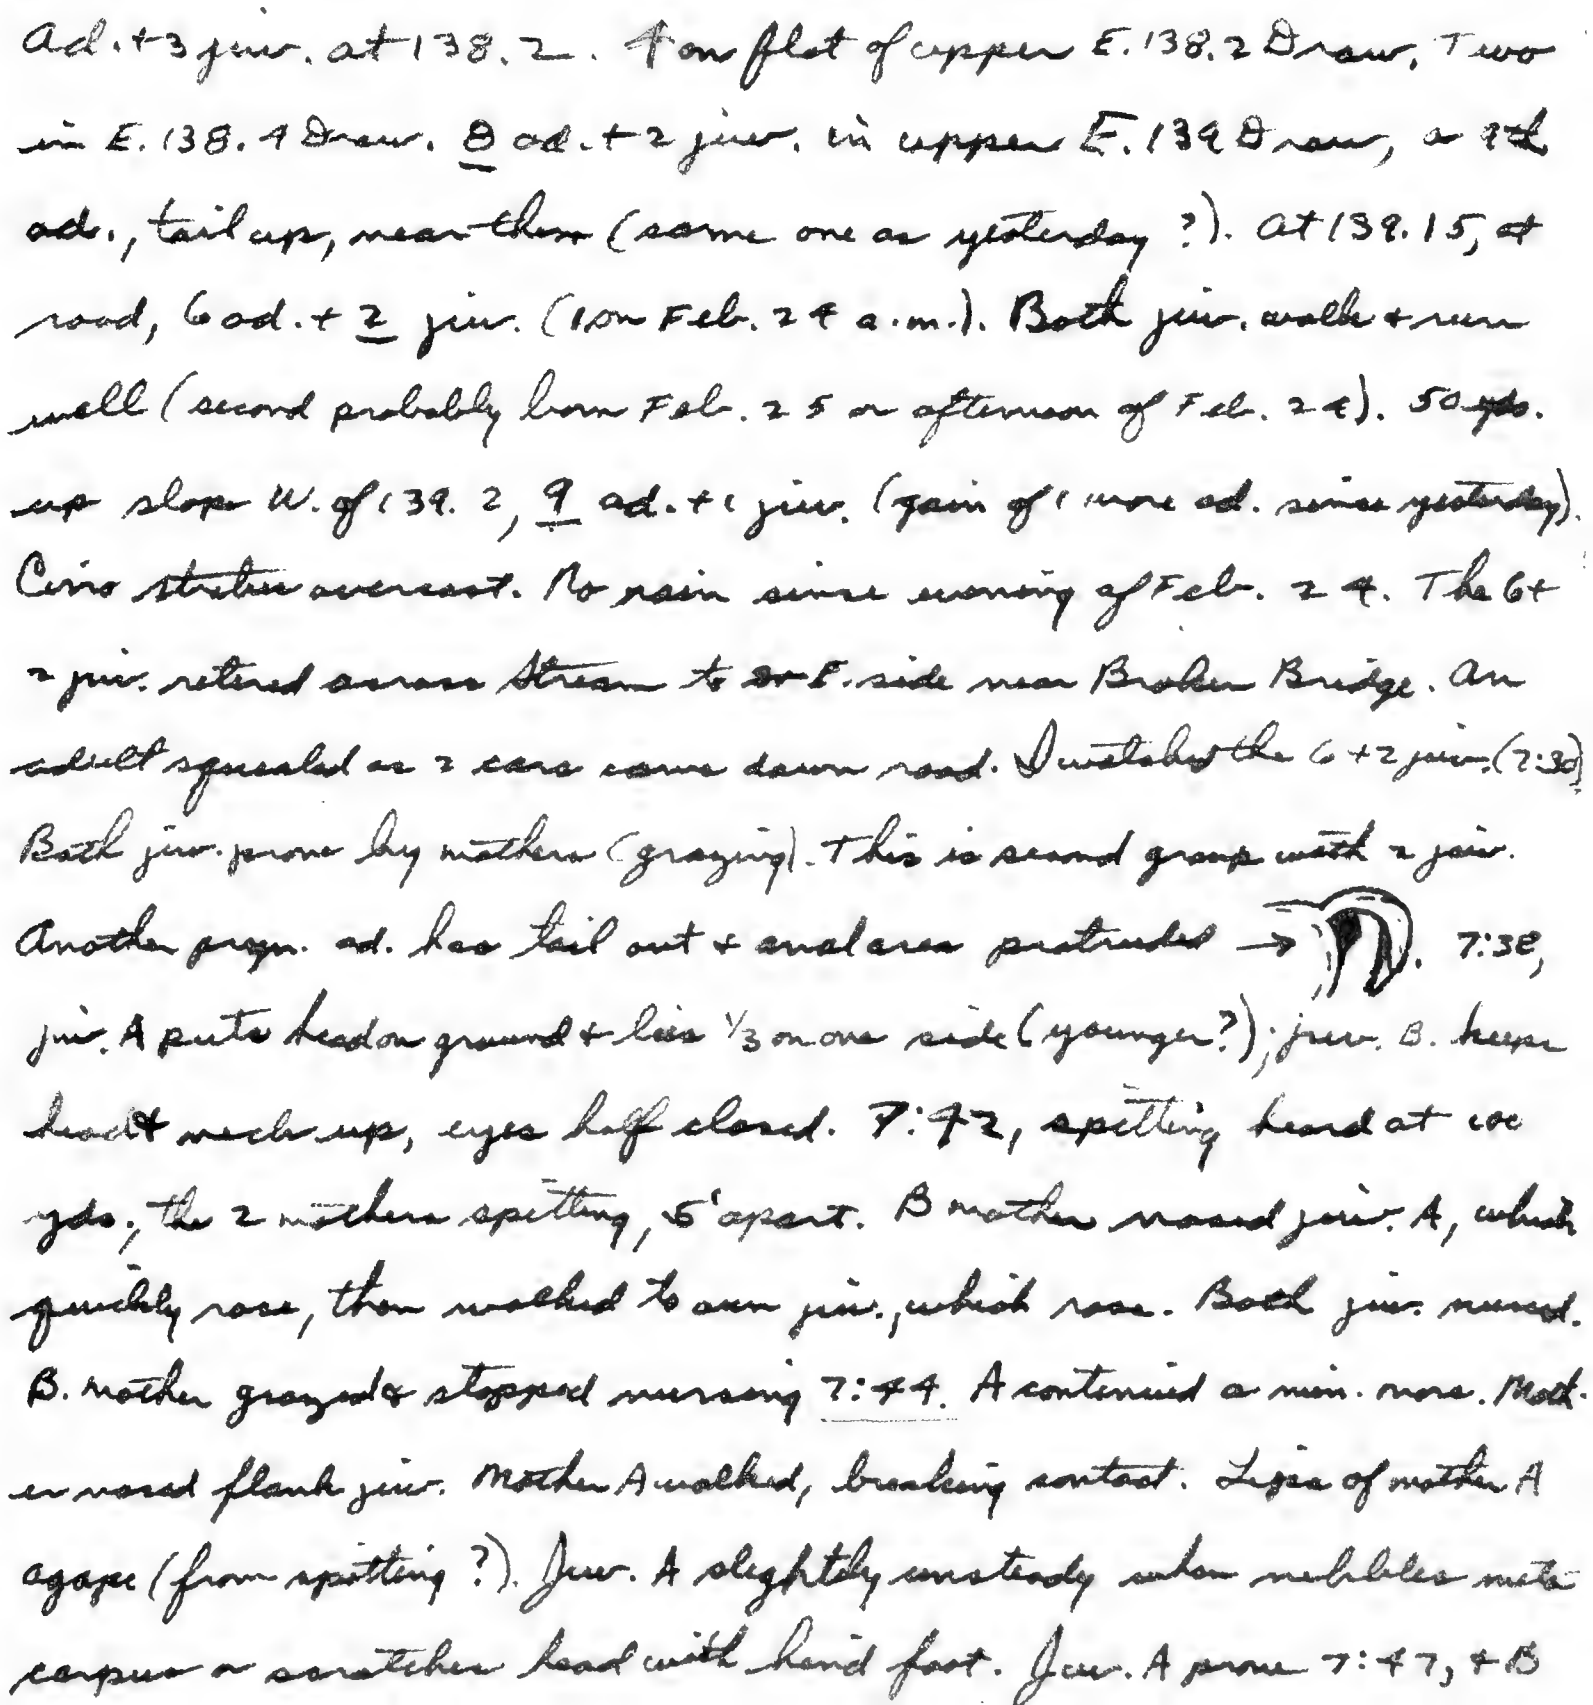 ad. + 3 juv. at 138.2. 4 on flat of upper E. 138.2 Draw. Two
in E. 138.4 Draw. 8 ad. + 2 juv. in upper E. 139 Draw, a 9th
ad., tail up, near them (same one as yesterday?). At 139.15, at
road, 6 ad. + 2 juv. (1 on Feb. 24 a.m.). Both juv. walk & run
well (second probably born Feb. 25 or afternoon of Feb. 24). 50 yds.
up slope W. of 139.2, 9 ad. + 1 juv. (gain of 1 more ad. since yesterday).
Cirro stratus overcast. No rain since evening of Feb. 24. The 6 +
2 juv. retired across stream to E. side near Broken Bridge. An
adult squealed as 2 cars came down road. I watched the 6 + 2 juv. (7:30).
Both juv. prone by mothers (grazing). This is second group with 2 juv.
Another pregn. ad. has tail out & anal area protruded → . 7:38,
juv. A puts head on ground & lies 1/3 on one side (younger?); juv. B. keeps
head & neck up, eyes half closed. 7:42, spitting heard at 100
yds.; the 2 mothers spitting, 5' apart. B mother nosed juv. A, which
quickly rose, then walked to own juv., which rose. Both juv. nursed.
B. mother grazed & stopped nursing 7:44. A continued a min. more. Moth-
er nosed flank juv. Mother A walked, breaking contact. Lips of mother A
agape (from spitting?). Juv. A slightly unsteady when nibbles meta
carpus or scratches head with hind foot. Juv. A prone 7:47, & B